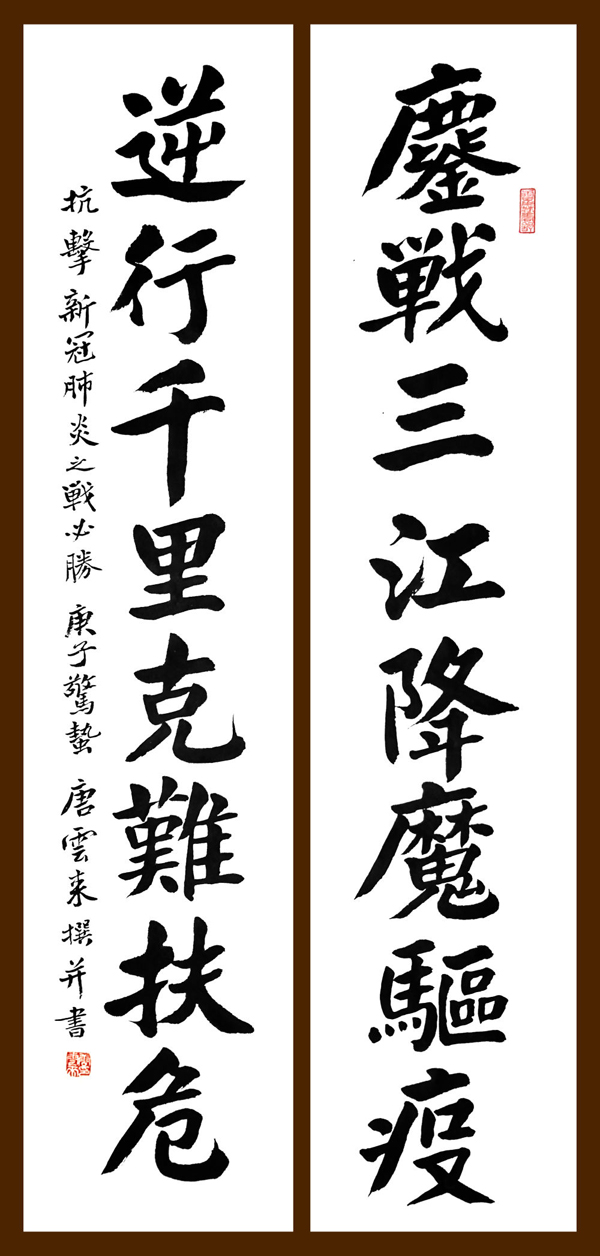 鏖戦三江降魔驅疫
逆行千里克難扶危
抗擊新冠肺炎之戦必勝 庚子驚蟄 唐雲来撰并書